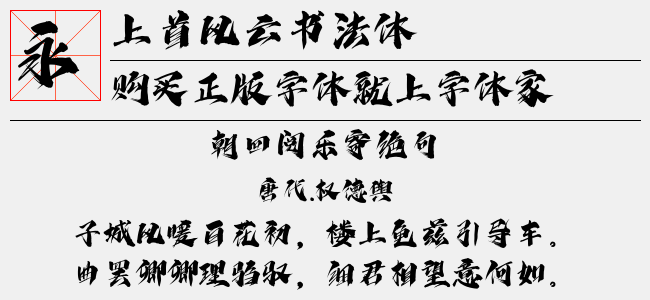 永
上首风云书法体
购买正版字体就上字体家
朝回阅乐寄绝句
唐代.权德舆
子城风暖百花初，楼上龟兹引导车。
曲罢卿卿理驺驭，细君相望意何如。